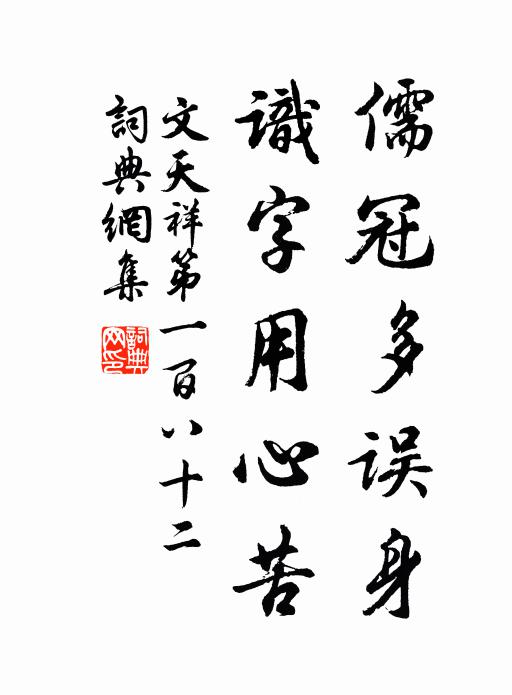 儒冠多误身
識字用心苦
文天祥第一百八十二
詞典網集
詞典網印